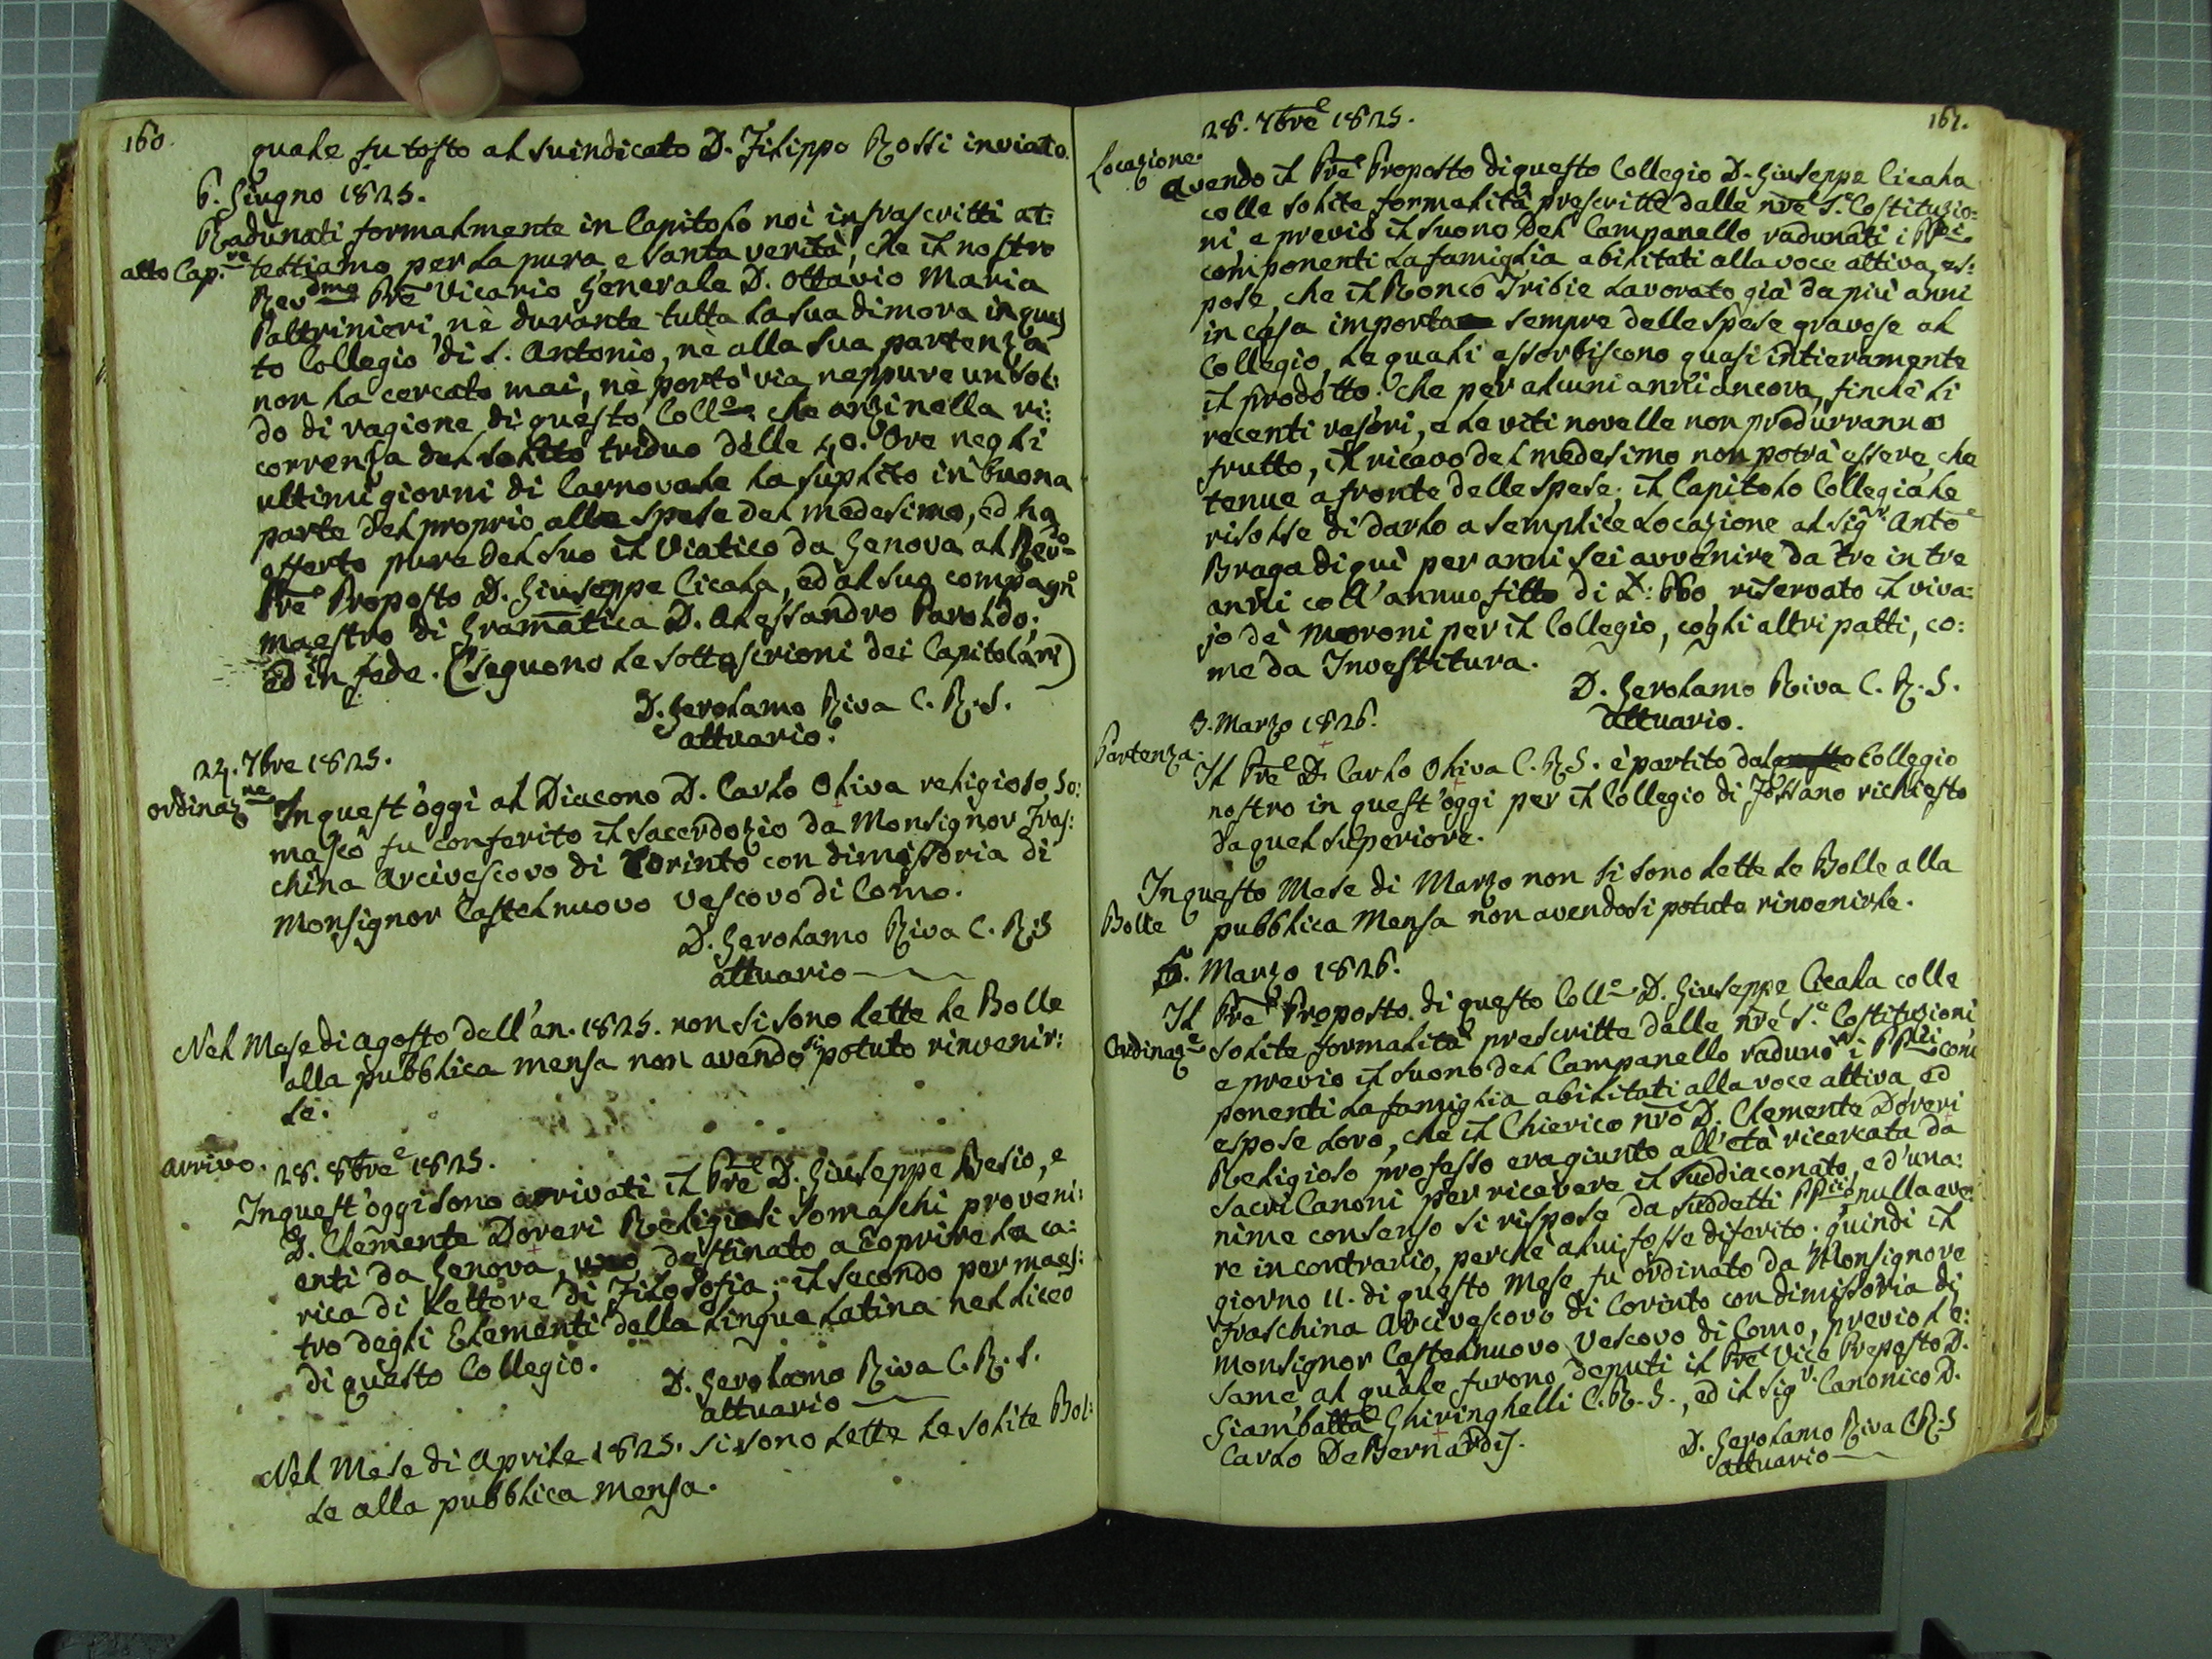 160.
quale fu tosto al suindicato D. Filippo Rossi inviato.
6. Giugno 1825.
Radunati formalmente in Capitolo noi infrascritti at:
atto Cap.re
testiamo per la pura, e santa verità, che il nostro
Revdmo Pre Vicario Generale D. Ottavio Maria
Paltrinieri, nè durante tutta la sua dimora in ques
to Collegio di S. Antonio, nè alla sua partenza
non ha cercato mai, nè portò via neppure un sol:
do di ragione di questo Collo: che anzi nella ri:
correnza del solito triduo delle 40. Ore negli
ultimi giorni di Carnovale ha suplito in buona
parte del proprio alle spese del medesimo, ed ha
offerto pure del suo il Viatico da Genova al Revdo
Pre Proposto D. Giuseppe Cicala, ed al suo compagno
maestro di Gramatica D. Alessandro Paroldo.
ed in fede. (seguono le sottoscrioni dei Capitolari)
D. Gerolamo Riva C. R. S.
attuario.
24. 7bre 1825.
ordinazne
In quest'oggi al Diacono D. Carlo Oliva religioso So:
masco fu conferito il sacerdozio da Monsignor Fras:
china Arcivescovo di Corinto con dimissoria di
Monsignor Castelnuovo Vescovo di Como.
D. Gerolamo Riva C. R. S
attuario
Nel Mese di Agosto dell'an. 1825. non si sono lette le Bolle
alla pubblica mensa non avendosi potuto rinvenir:
le.
arrivo.
28. 8bre 1825.
In quest'oggi sono arrivati il Pre D. Giuseppe Besio, e
D. Clemente Doveri Religiosi Somaschi proveni:
enti da Genova, uno destinato a coprire la ca:
rica di Lettore di Filosofia, il secondo per maes:
tro degli Elementi della Lingua Latina nel Liceo
di questo Collegio.
D. Gerolamo Riva C. R. S.
attuario
Nel Mese di Aprile 1825. si sono lette le solite Bol:
le alla pubblica Mensa.
161.
28. 7bre 1825.
Locazione.
Avendo il Pre Proposto di questo Collegio D. Giuseppe Cicala
colle solite formalità prescritte dalle nre Se Costituzio:
ni e previo il suono del Campanello radunati i PPri
componenti la famiglia abilitati alla voce attiva, es:
pose, che il Ronco Tribie lavorato già da più anni
in casa importa sempre delle spese gravose al
Collegio, le quali assorbiscono quasi intieramente
il prodotto: che per alcuni anni ancora, finchè li
recenti rasori, e le viti novelle non produrranno
frutto, il ricavo del medesimo non potrà essere, che
tenue a fronte delle spese; il Capitolo Collegiale
risolse di darlo a semplice locazione al Sigr Antoe
Braga di qui per anni sei avvenire da tre in tre
anni coll'annuo fitto di L: 660 riservato il viva:
jo de' Moroni per il Collegio, cogli altri patti, co:
me da Investitura.
D. Gerolamo Riva C. R. S.
attuario.
3. Marzo 1826.
Partenza.
Il Pre D. Carlo Oliva C. R. S. è partito dal Collegio
nostro in quest'oggi per il Collegio di Fossano richiesto
da quel superiore.
In questo Mese di Marzo non si sono lette le Bolle alla
Bolle
pubblica Mensa non avendosi potute rinvenirle.
6. Marzo 1826.
Il Pre Proposto di questo Collo D. Giuseppe Cicala colle
Ordinaze
solite formalità prescritte dalle nre Se Costituzioni
e previo il suono del Campanello radunò i PPri com
ponenti la famiglia abilitati alla voce attiva, ed
espose loro, che il Chierico nro D. Clemente Doveri
Religioso professo era giunto all'età ricercata da
Sacri Canoni per ricevere il Suddiaconato, ed una:
nime consenso si rispose da suddetti PPri nulla ave
re in contrario, perchè a lui fosse diferito; quindi il
giorno 11. di questo Mese fu ordinato da Monsignore
Fraschina Arcivescovo di Corinto con dimissoria di
Monsignor Castelnuovo Vescovo di Como, previo l'e:
same, al quale furono deputi il Pre Vice Preposto D.
Giambatta Ghiringhelli C. R. S., ed il Sigr Canonico D.
Carlo De Bernardis.
D. Gerolamo Riva C R. S
attuario